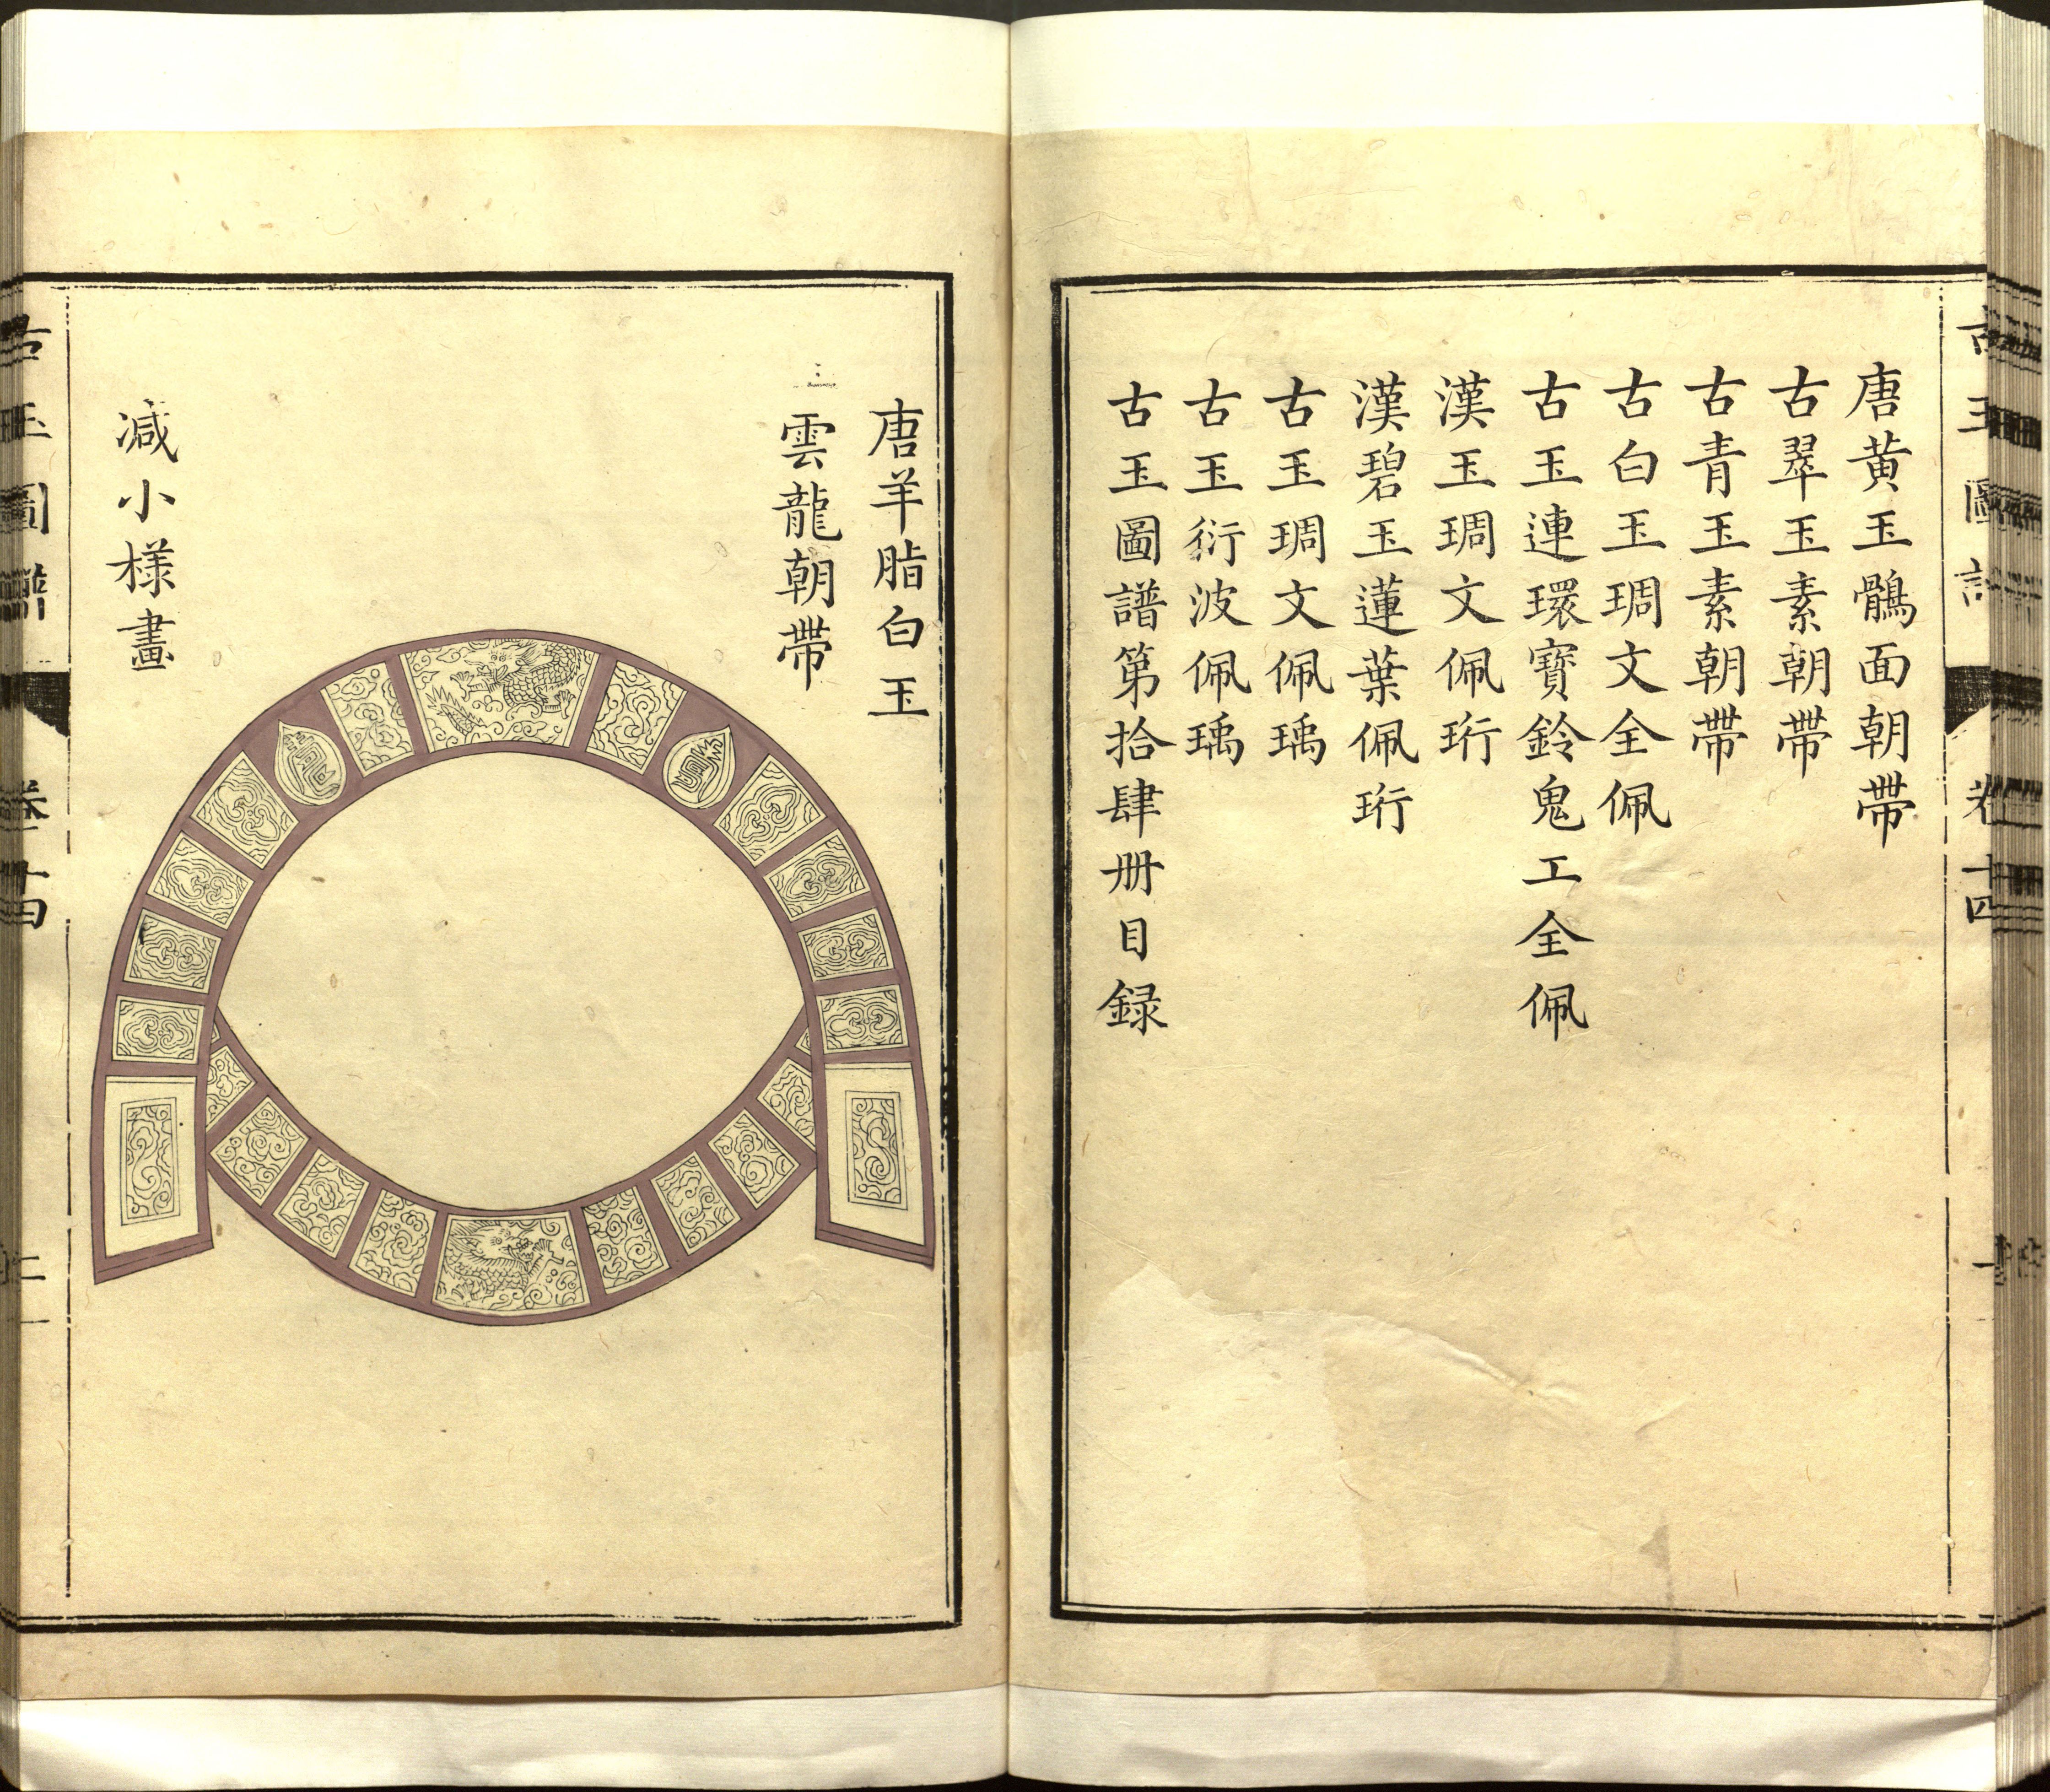 唐黄玉鶻面朝帶
古翠玉素朝帶
古青玉素朝帶
古白玉琱文全佩
古玉連環寶鈴鬼工全佩
漢玉琱文佩珩
漢碧玉蓮葉佩珩
古玉琱文佩瑀
古玉衍波佩瑀
古玉圖譜第拾肆册目録
唐羊脂白玉
雲龍朝帶
減小樣畫
古玉圖譜